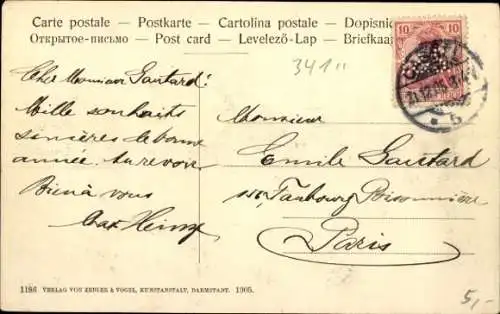 Carte postale – Postkarte – Cartolina postale – Dopisnic
Открытое-письмо – Post card – Levelező-Lap – Briefkaa
341 "
10 10
Cher Monsieur Gautard!
Mille souhaits
sincères de bonne
année. Au revoir
Bien à vous
Max Heinze
Monsieur
Emile Gautard
Faubourg Poissonnière
Paris
5
1186 VERLAG VON ZEDLER & VOGEL, KUNSTANSTALT, DARMSTADT. 1905.
5,-